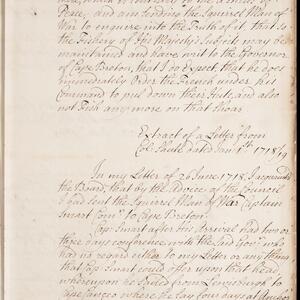 Peace, and am sending the Squirrel Man of
War to enquire into the Truth of it, that so
the Fishery of His Majesty's Subjects may be
maintain'd and have writ to the Governor
of Cape Breton, that I do Expect that he does
immediately Order the French under his
Command to put down their Huts, and also
not Fish any more on that Shoar.
Extract of a Letter from
Col: Shute dated Jan 1st 1718/19
In my Letter of 26 June 1718, I acquainted
the Board, that by the advice of the Council
I had sent the Squirrel Man of War Captain
Smart Comr. to Cape Breton.
Cap: Smart after his arrival had two or
three days conference with the said Govr. who
had no regard either to my Letter or any thing
that Cap: Smart could offer upon that head,
whereupon he Sailed from Lewisburgh to
Cape Canco where he lay four days at